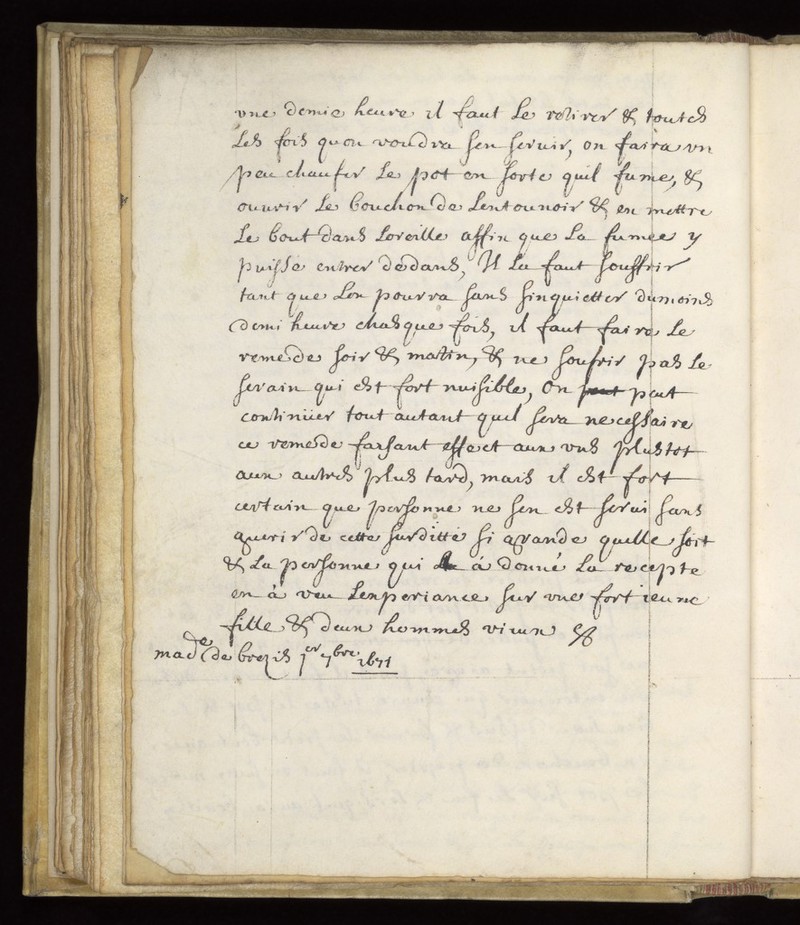 vne demie heure il faut le retirer & toutes
les fois quon voudra sen seruir, on faira vn
peu chaufer le pot en sorte quil fume, &
ouurir le bouchon de lentounoir & en mettre
le bout dans loreille affin que la fumée y
puisse entrer dedans, Il la faut souffrir
tant que lon pourra sans sinquietter dumoins
demi heure chasque fois, il faut faire le
remede soir & matin, & ne soufrir pas le
serain qui est fort nuisible, On peut peut
continüer tout autant quil sera necessaire
ce remede faisant effect aux vns plustot
aux autres plus tard, mais il est fort
certain que personne ne sen est serui sans
guerir de cette surditte si grande quelle soit
& la personne qui à donné la recepte
en à veu lexperiance sur vne fort ieune
fille & deux hommes vieux &
mad de de brezis 1er 7bre 1671